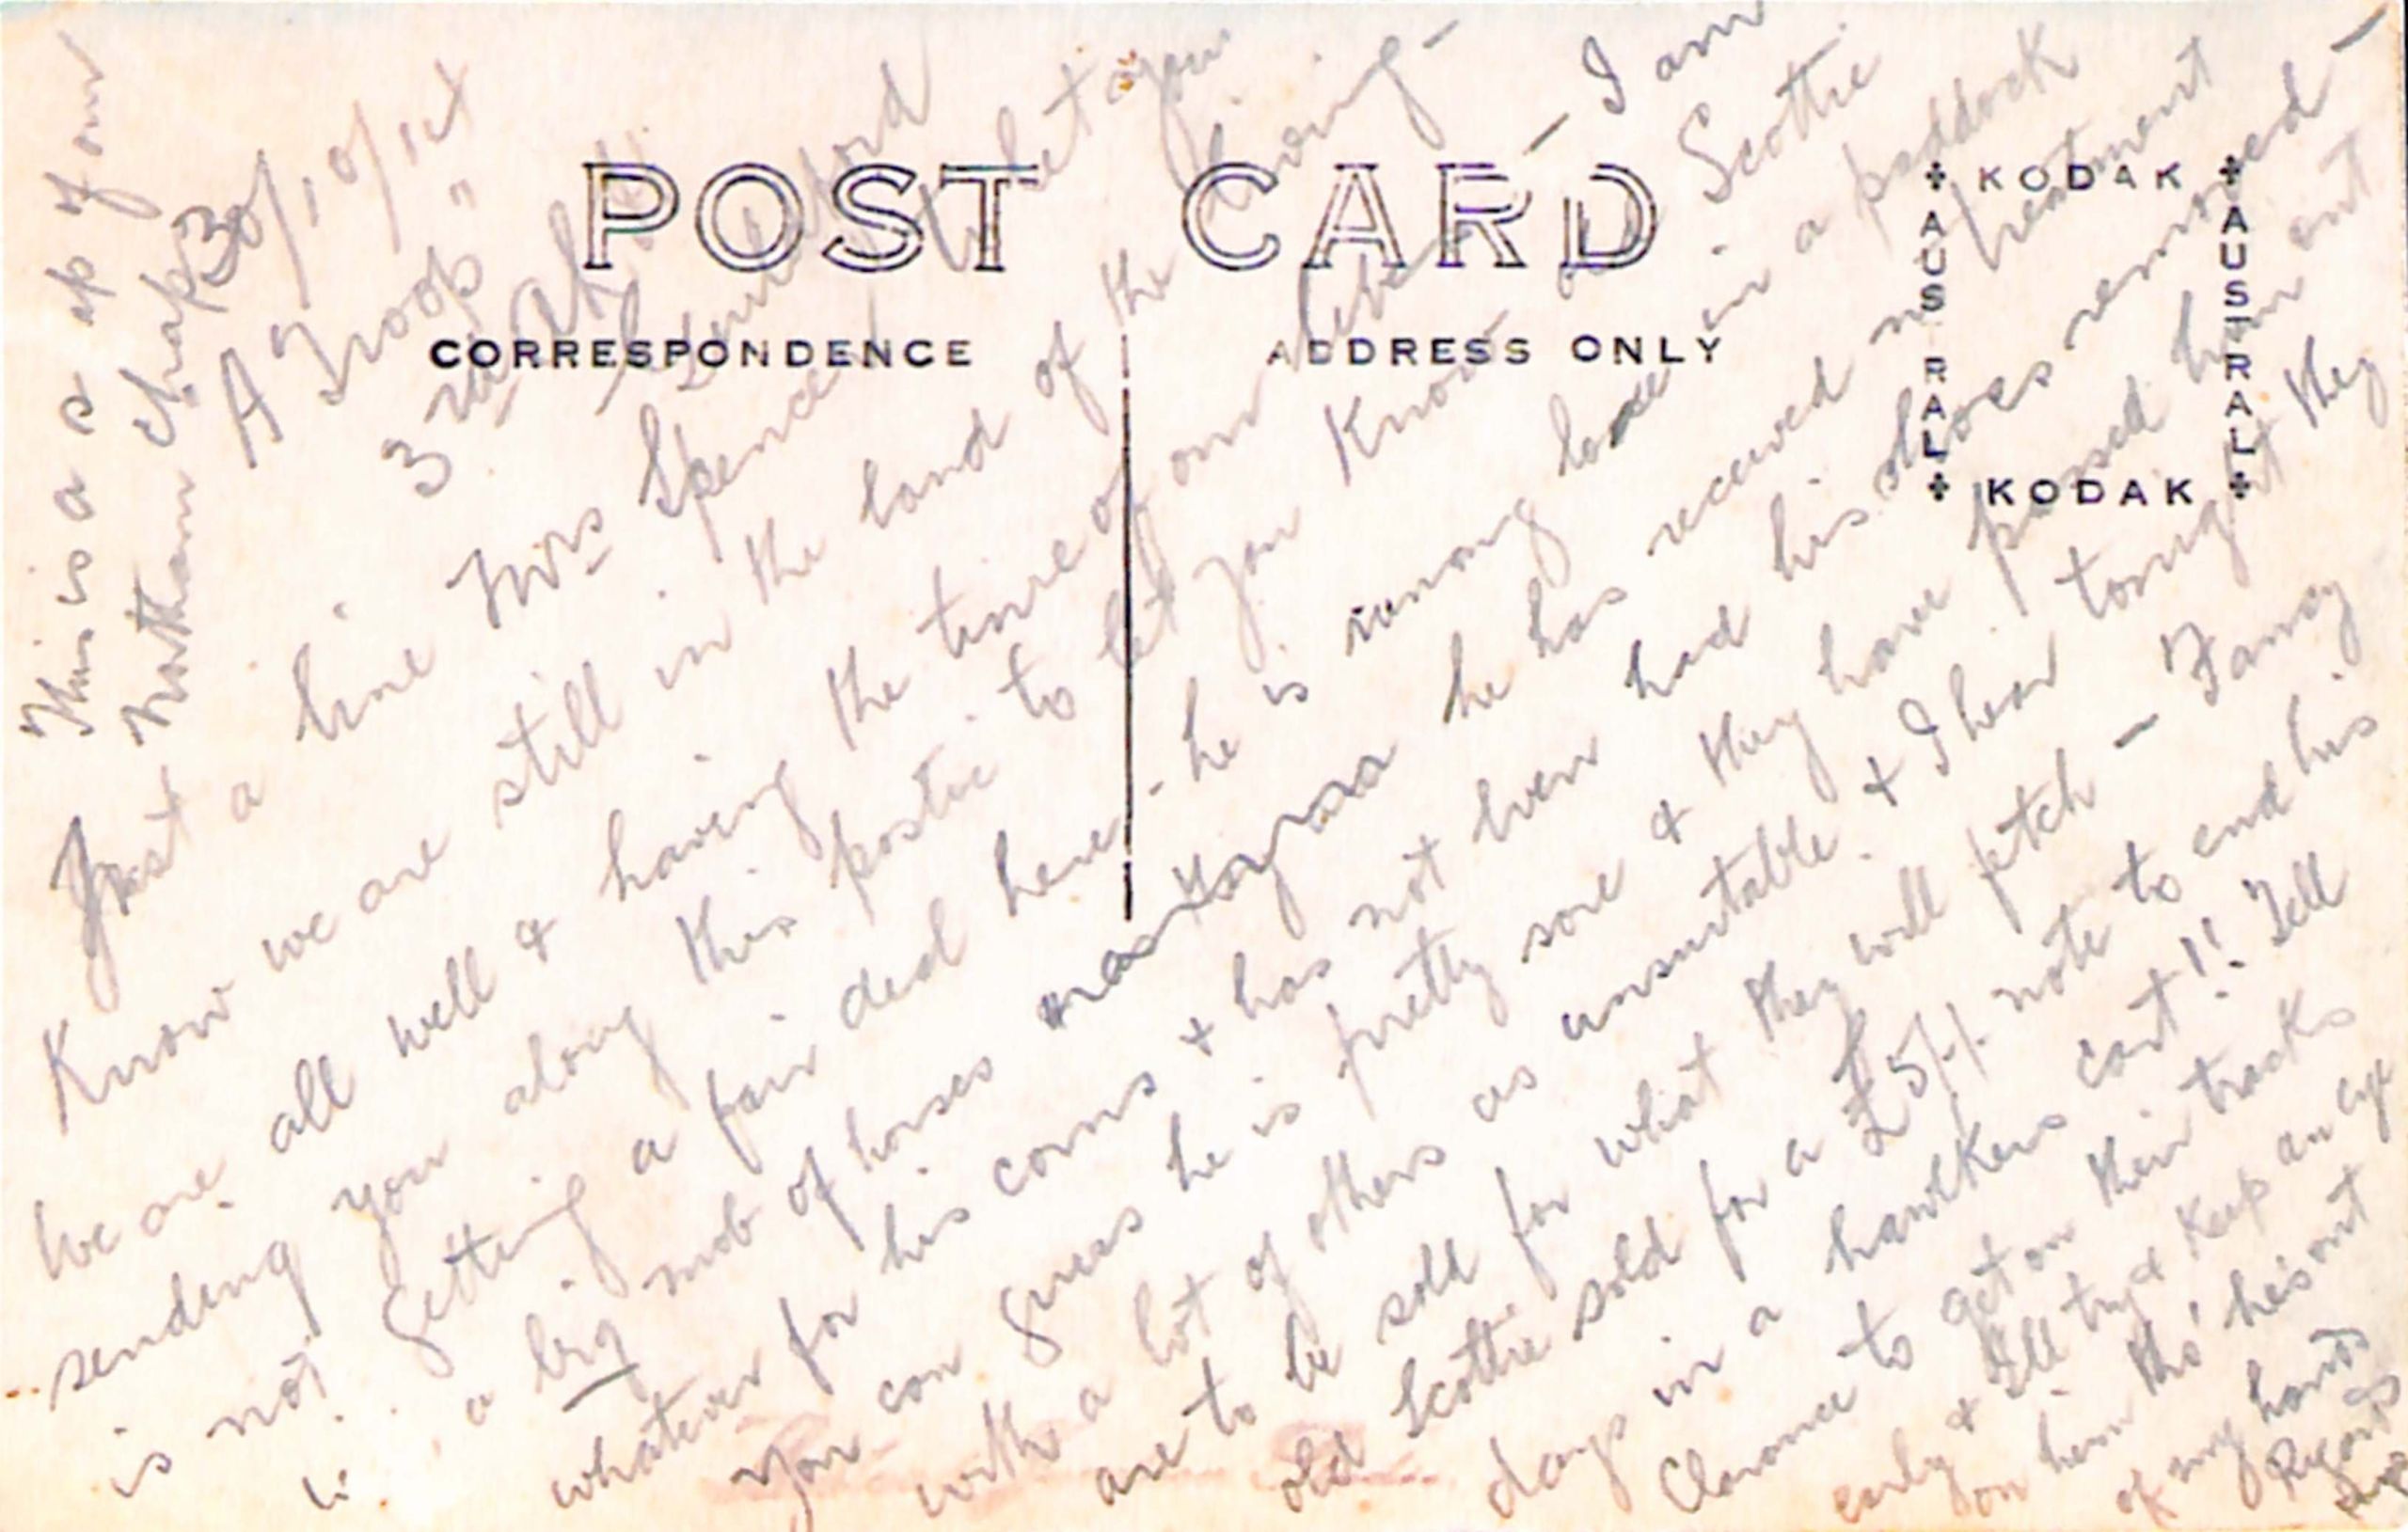 POST CARD
CORRESPONDENCE
ADDRESS ONLY
KODAK
AUSTRAL
KODAK
AUSTRAL
This is a s ap of our
Northam chaps
30/10/14
A Troop "
3rd
Just a line Mrs Spencer to let you
Know we are still in the land of the living —
We are all well & having the time of our lives — I am
sending you along this postie to let you Know Scottie
is not getting a fair deal here - he is among loose in a paddock
in a big mob of horses he has received no treatment
whatever for his corns & has not even had his shoes removed —
You can guess he is pretty sore & they have passed him out
with a lot of others as unsuitable & I hear tonight they
are to be sold for what they will fetch — Fancy
old Scottie sold for a £5/-/- note to end his
days in a hawkers cart!! Tell
Clarance to get on their tracks
early & I'll try & Keep an eye
on him tho' he's out
of my hands
Regards